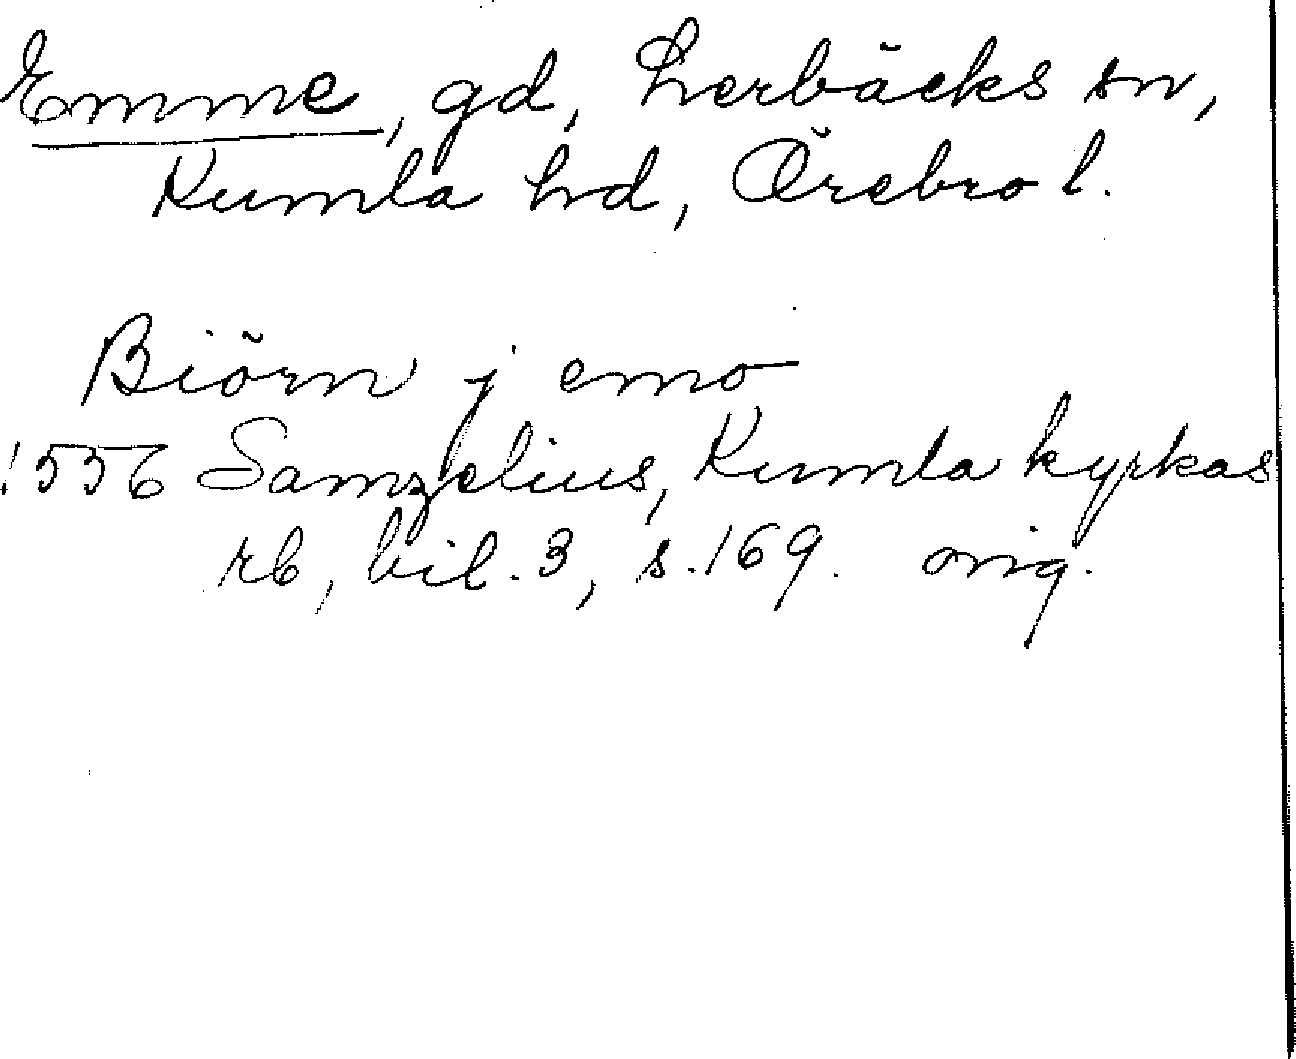 Emme, gd, Lerbäcks sn,
Kumla hd, Örebro l.
Biörn j emo
1556 Samzelius, Kumla kyrkas
rb, bil. 3, s. 169. orig.